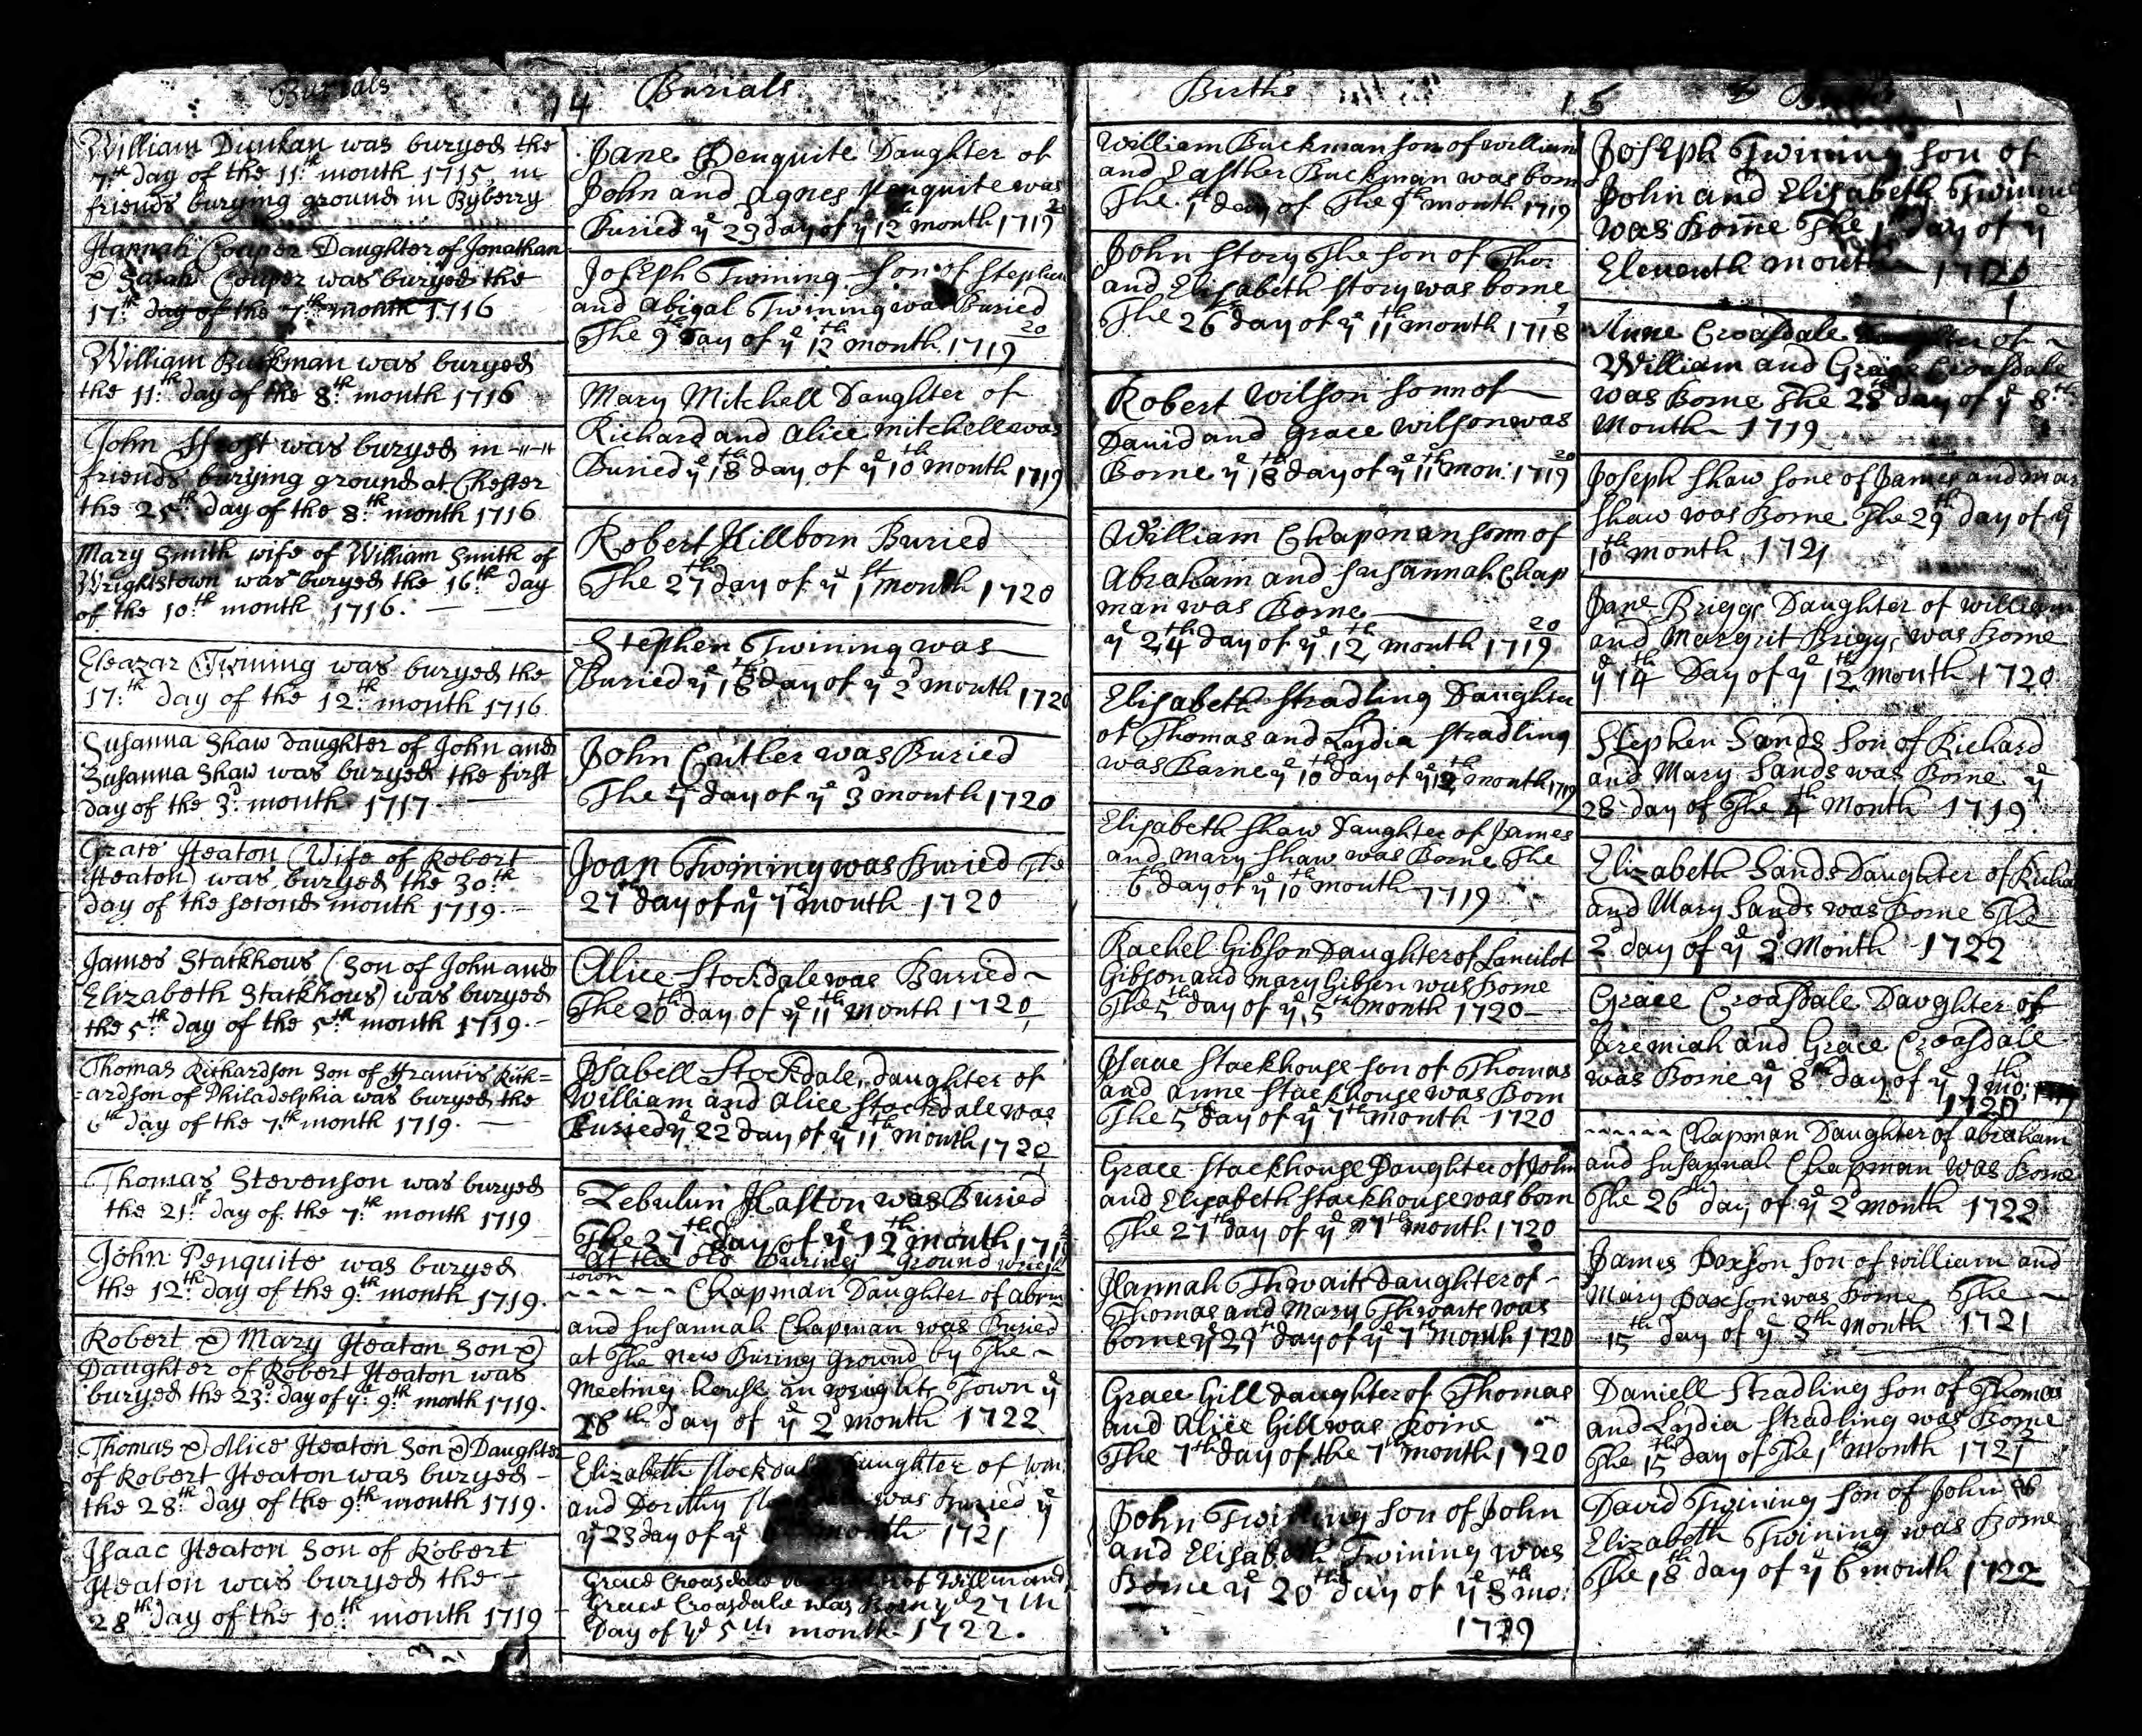 Burials
14
Burials
William Dunkan was buryed the
7th day of the 11th month 1715 in
friends burying ground in Byberry
Hannah Couper Daughter of Jonathan
& Sarah Couper was buryed the
17th day of the 7th month 1716
William Buckman was buryed
the 11th day of the 8th month 1716
John Frost was buryed in
friends burying ground at Chester
the 25th day of the 8th month 1716
Mary Smith wife of William Smith of
Wrightstown was buryed the 16th day
of the 10th month 1716.
Eleazar Twining was buryed the
17th day of the 12th month 1716
Susanna Shaw daughter of John and
Susanna Shaw was buryed the first
day of the 3d month 1717.
Grace Heaton (Wife of Robert
Heaton) was buryed the 30th
day of the second month 1719.
James Stackhous (Son of John and
Elizabeth Stackhous) was buryed
the 5th day of the 5th month 1719.
Thomas Richardson Son of Francis Rich=
=ardson of Philadelphia was buryed the
6th day of the 7th month 1719.
Thomas Stevenson was buryed
the 21st day of the 7th month 1719
John Penquite was buryed
the 12th day of the 9th month 1719.
Robert & Mary Heaton Son &
Daughter of Robert Heaton was
buryed the 23d day of ye 9th month 1719.
Thomas & Alice Heaton Son & Daughter
of Robert Heaton was buryed
the 28th day of the 9th month 1719.
Isaac Heaton Son of Robert
Heaton was buryed the
28th day of the 10th month 1719
Jane Penquite Daughter of
John and Agnes penquite was
Buried ye 23 day of ye 12th month 1719
Joseph Twining Son of Stephen
and Abigal Twining was Buried
The 9th Day of ye 12th month 1719 20
Mary Mitchell Daughter of
Richard and Alice mitchell was
Buried ye 18th day of ye 10th month 1719
Robert Hillborn Buried
The 27th day of ye 1st month 1720
Stephen Twining was
Buried ye 18th day of ye 2d month 1720
John Cutler was Buried
The day of ye 3d month 1720
Joan Twining was Buried The
27th day of ye 7th month 1720
Alice Stockdale was Buried
The 20th day of ye 11th month 1720
Isabell Stockdale, daughter of
William and Alice Stockdale was
Buried ye 22 day of ye 11th month 1720
Zebulun Haston was Buried
The 27th day of ye 12th month
at the old Buring ground wright
town
Chapman Daughter of abrm
and Susannah Chapman was Buried
at The New Buring Ground by The
Meeting house in wrights Town ye
28th day of ye 2d month 1722
Elizabeth Stockdale Daughter of wm
and Dorithy was Buried ye
ye 23 day of ye month 1721
Grace Croasdale Daughter of Willm and
Grace Croasdale was Born ye 27th
Day of ye 5th month 1722.
Births
15
William Buckman Son of William
and Easther Buckman was born
The 1st day of The 9th month 1719
John Story The Son of Tho:
and Elisabeth Story was borne
The 26th day of ye 11th month 1718 9
Robert Wilson Sonn of
David and Grace Wilson was
Borne ye 18th day of ye 11th mon: 1719 20
William Chapman Sonn of
Abraham and Susannah Chap
man was Borne
ye 24th day of ye 12th month 1719 20
Elisabeth Stradling Daughter
of Thomas and Lydia Stradling
was Barne ye 10th day of ye 12th month 1719
Elisabeth Shaw Daughter of James
and Mary Shaw was Borne The
6th day of ye 10th month 1719
Rachel Gibson Daughter of Lancilot
Gibson and mary Gibson was Borne
The 5th day of ye 5th month 1720
Isaac Stackhouse Son of Thomas
and Anne Stackhouse was Born
The 5 day of ye 7th month 1720
Grace Stackhouse Daughter of John
and Elisabeth Stackhouse was born
The 27th day of ye 7th month 1720
Hannah Thwaits daughter of
Thomas and Mary Thwaits was
borne ye 27th day of ye 7th month 1720
Grace Gill Daughter of Thomas
and Alice Gill was Boine
The 7th day of the 7th month 1720
John Twining Son of John
and Elisabeth Twining was
Borne ye 20th day of ye 8th mo:
1719
Joseph Twining Son of
John and Elisabeth Twining
was Borne The 1st day of ye
Eleventh month 1720
1
Anne Croasdale Daughter of
William and Grace Croasdale
was Borne The 28th day of ye 8th
Month 1719
Joseph Shaw Sone of James and mary
Shaw was Borne The 29th day of ye
10th month 1721
Jane Briggs Daughter of william
and Margrit Briggs was Borne
ye 14th Day of ye 12th month 1720
Stephen Sands Son of Richard
and Mary Sands was Borne ye
28 day of The 4th Month 1719
Elizabeth Sands Daughter of Richard
and Mary Sands was Borne The
2d day of ye 2d Month 1722
Grace Croasdale Daughter of
Jeremiah and Grace Croasdale
was Borne ye 8th day of ye 9th mo:
1720
Chapman Daughter of abraham
and Susannah Chapman was Borne
The 26th day of ye 2d month 1722
James Paxson Son of william and
Mary Paxson was Borne The
15th day of ye 8th Month 1721
Daniell Stradling Son of Thomas
and Lydia Stradling was Borne
The 15th day of The 1st Month 1721
David Twining Son of John &
Elizabeth Twining was Borne
The 18th day of ye 6th month 1722